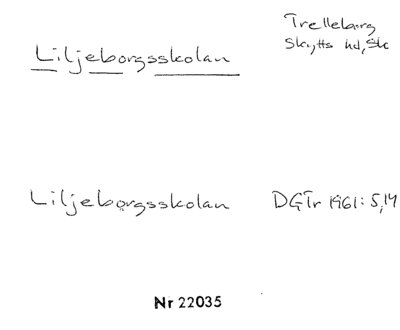 Trelleborg
Skytts hd, Sk
Liljeborgsskolan
Liljeborgsskolan DGTr 1961: 5,14
Nr 22035